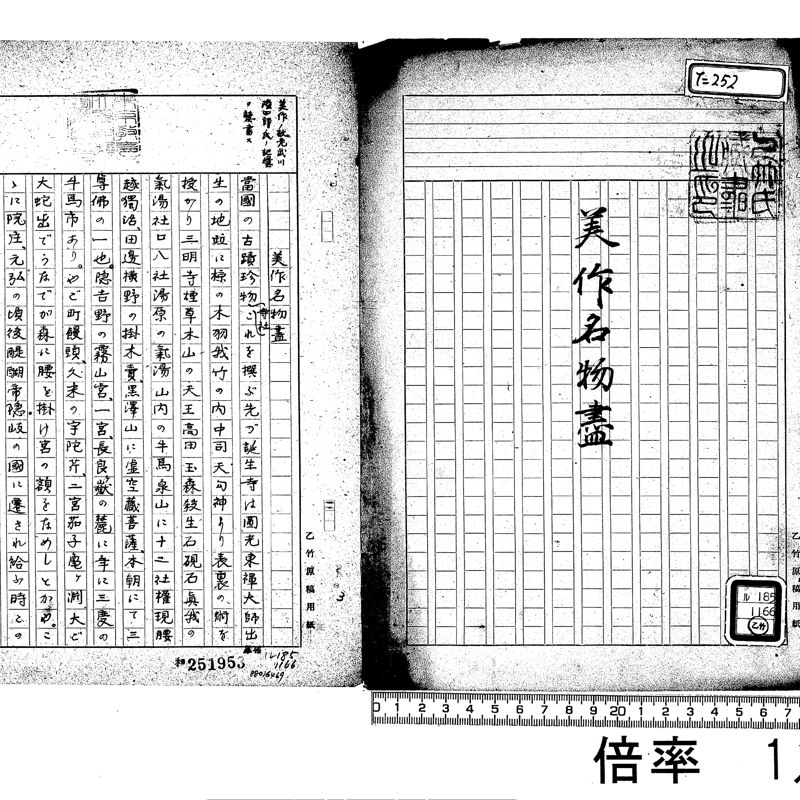 T=252
美作名物盡
ル185
1166
乙竹
乙竹原稿用紙
美作ノ
氏ノ記憶
美作名物盡
當國の古蹟珍物(寺社)これを撰ぶ先づ誕生寺は圓光東禪大師出
生の地竝に椋の木羽我竹の内中司天勾神より表裏の術を
授かり三明寺煙草木山の天王高田玉森殺生石硯石眞我の
氣湯社口八社湯原の氣湯山内の牛馬泉山に十二社權現腰
越獨活、田邊横野の掛木賣、黒澤山に虚空藏菩薩、本朝にて三
尊佛の一也。隠吉野の霧山宮、一宮、長良嶽の麓に年に三度の
牛馬市あり。やで町饅頭、久米の宇陀芹、二宮茄子亀ヶ渕、大で
大蛇出でうなでが森に腰を掛け宮の額をなめしとかや。こ
ゝに院庄、元弘の頃後醍醐帝隠岐の國に遷され給ふ時この
乙竹原稿用紙
251953
ル185
1166
0 1 2 3 4 5 6 7 8 9 20 1 2 3 4 5 6 7
倍率 1